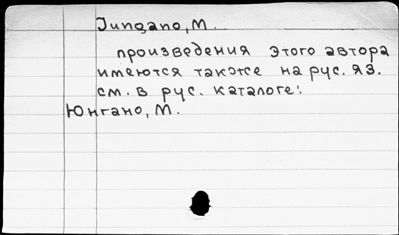 Jungano, M.
произведения этого автора
имеются также на рус. яз.
см. в рус. каталоге:
Юнгано, М.